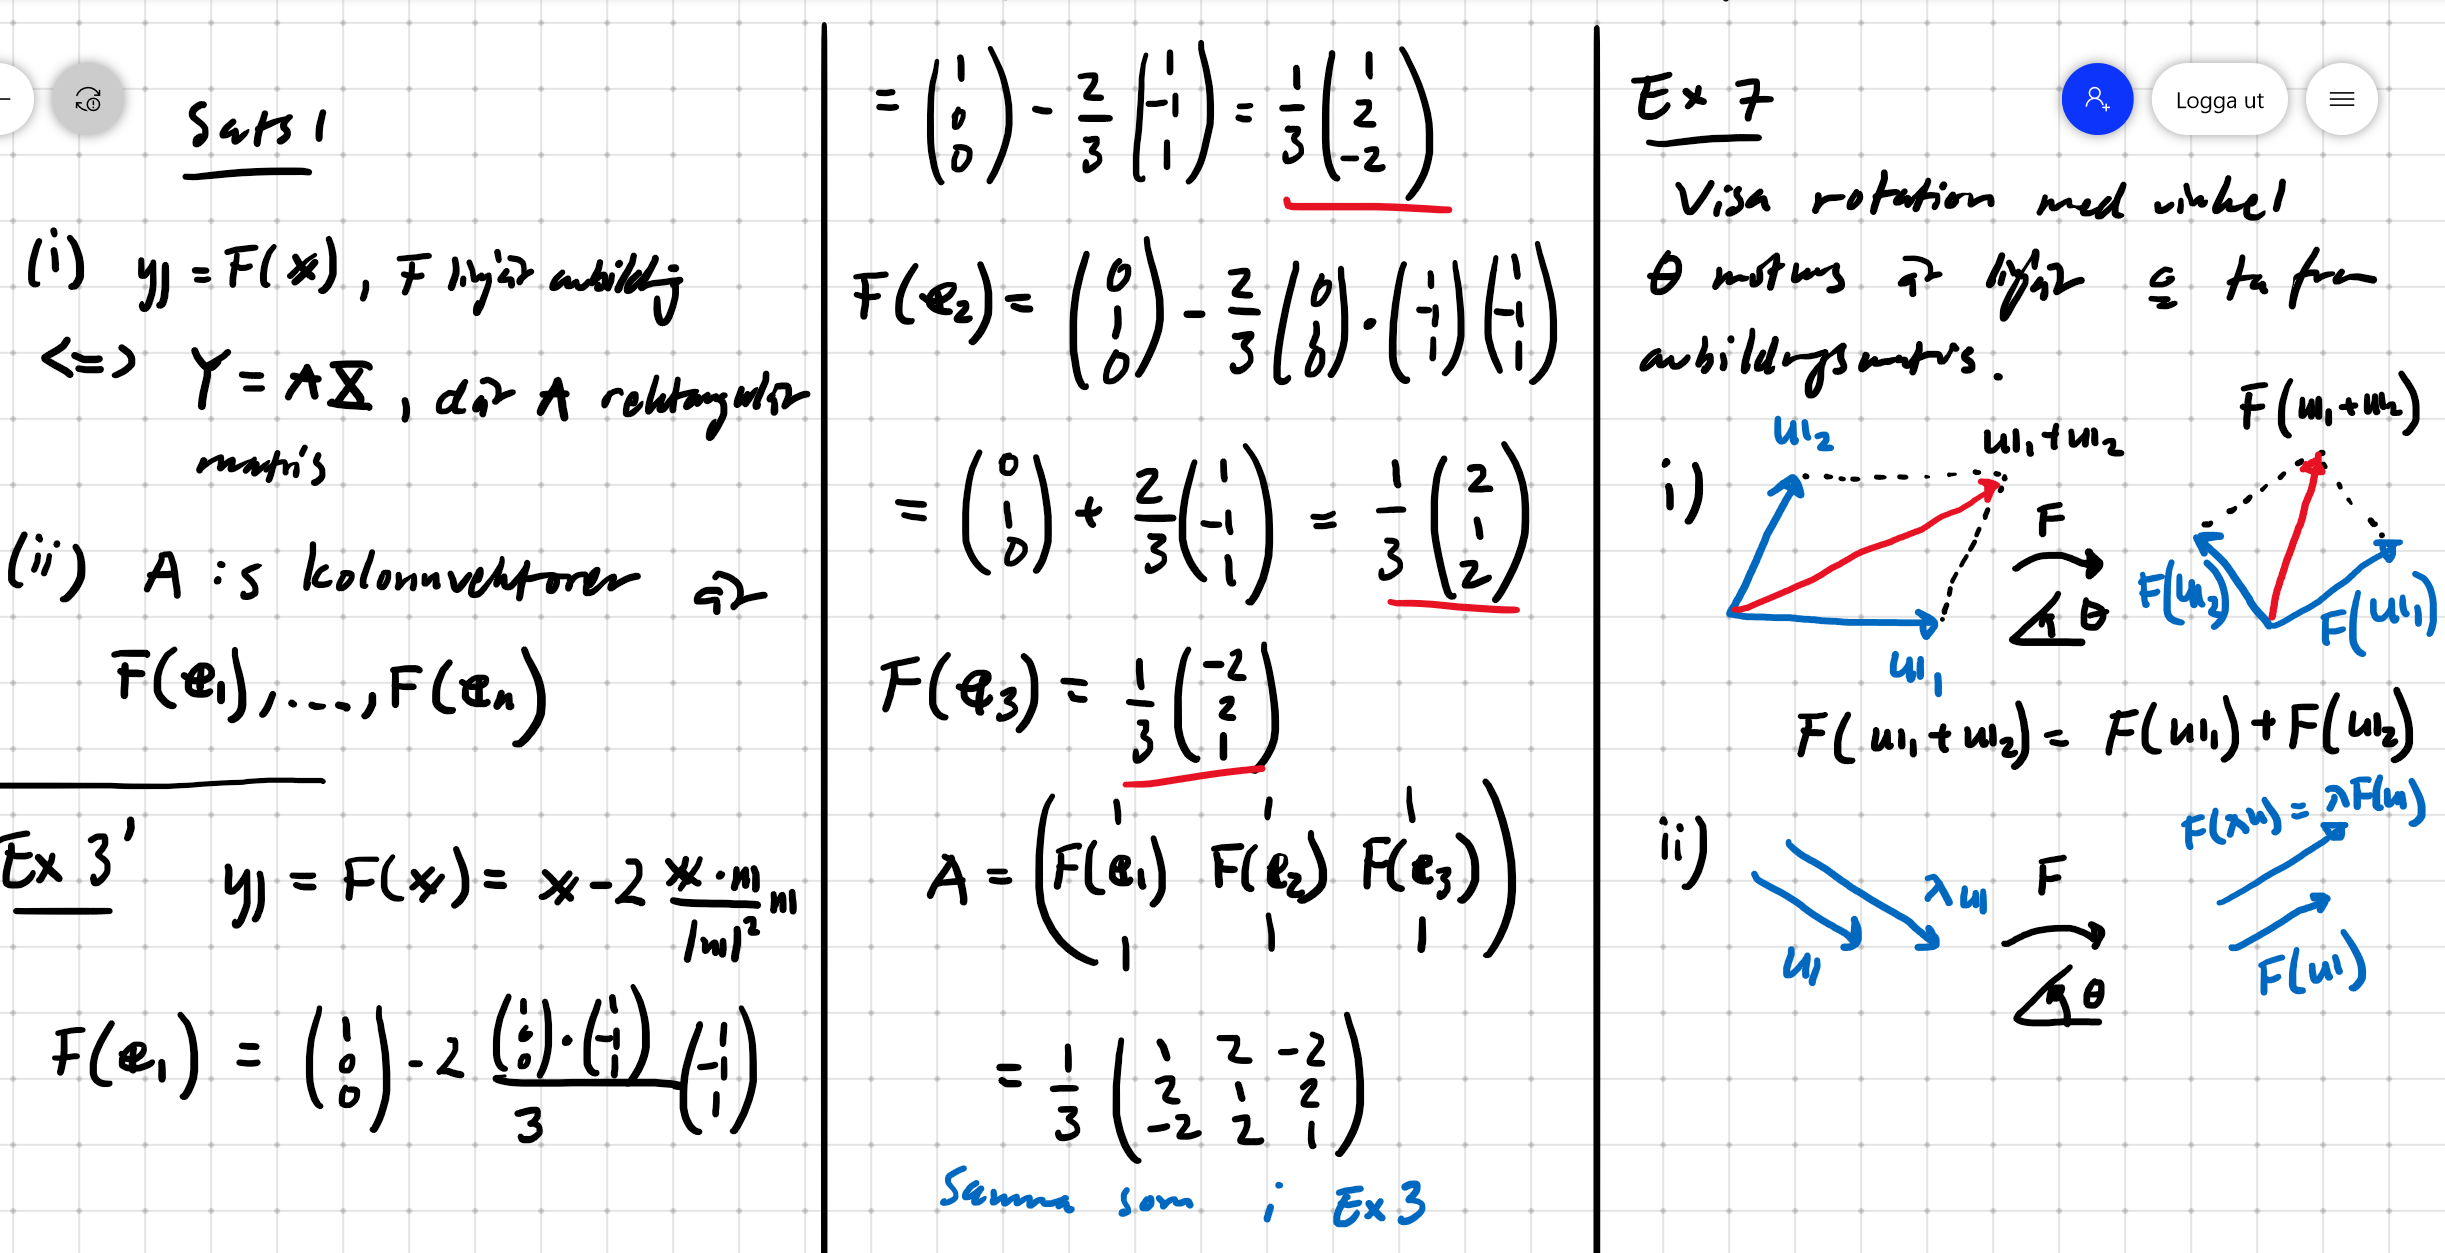 Sats 1
(i) y = F(x), F linjär avbildning
<=> Y = AX, där A rektangulär
matris
(ii) A:s kolonnvektorer är
F(e₁), ..., F(eₙ)
Ex 3'
y = F(x) = x - 2 (x·n)/|n|² n
F(e₁) = (1 0 0) - 2 ((1 0 0)·(1 -1 1))/3 (1 -1 1)
= (1 0 0) - 2/3 (1 -1 1) = 1/3 (1 2 -2)
F(e₂) = (0 1 0) - 2/3 (0 1 0)·(1 -1 1)(1 -1 1)
= (0 1 0) + 2/3 (1 -1 1) = 1/3 (2 1 2)
F(e₃) = 1/3 (-2 2 1)
A = (F(e₁) F(e₂) F(e₃))
= 1/3 (1 2 -2
2 1 2
-2 2 1)
Samma som i Ex 3
Logga ut
Ex 7
Visa rotation med vinkel
θ moturs är linjär & ta fram
avbildningsmatris.
i)
u₂
u₁+u₂
u₁
F
θ
F(u₁+u₂)
F(u₂)
F(u₁)
F(u₁+u₂) = F(u₁)+F(u₂)
ii)
u
λu
F
θ
F(λu) = λF(u)
F(u)